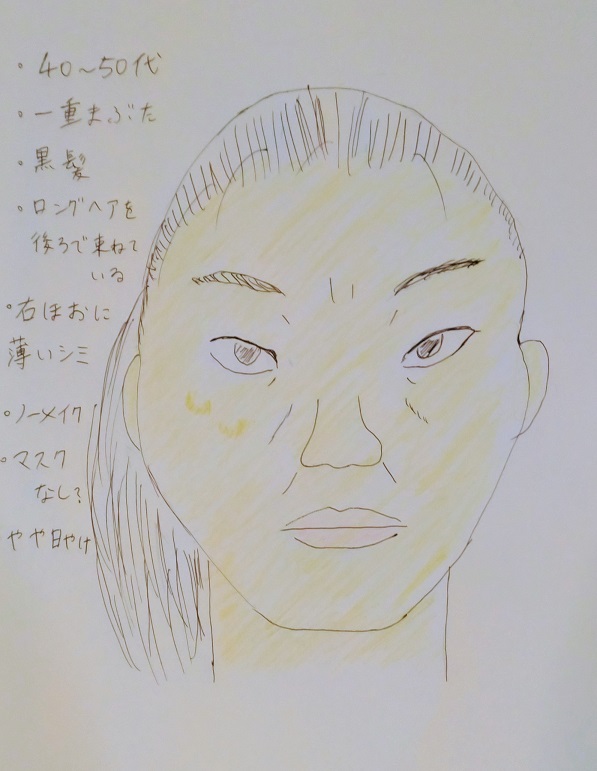 ・40～50代
・一重まぶた
・黒髪
・ロングヘアを
後ろで束ねて
いる
・右ほおに
薄いシミ
・ノーメイク
・マスク
なし?
やや日やけ